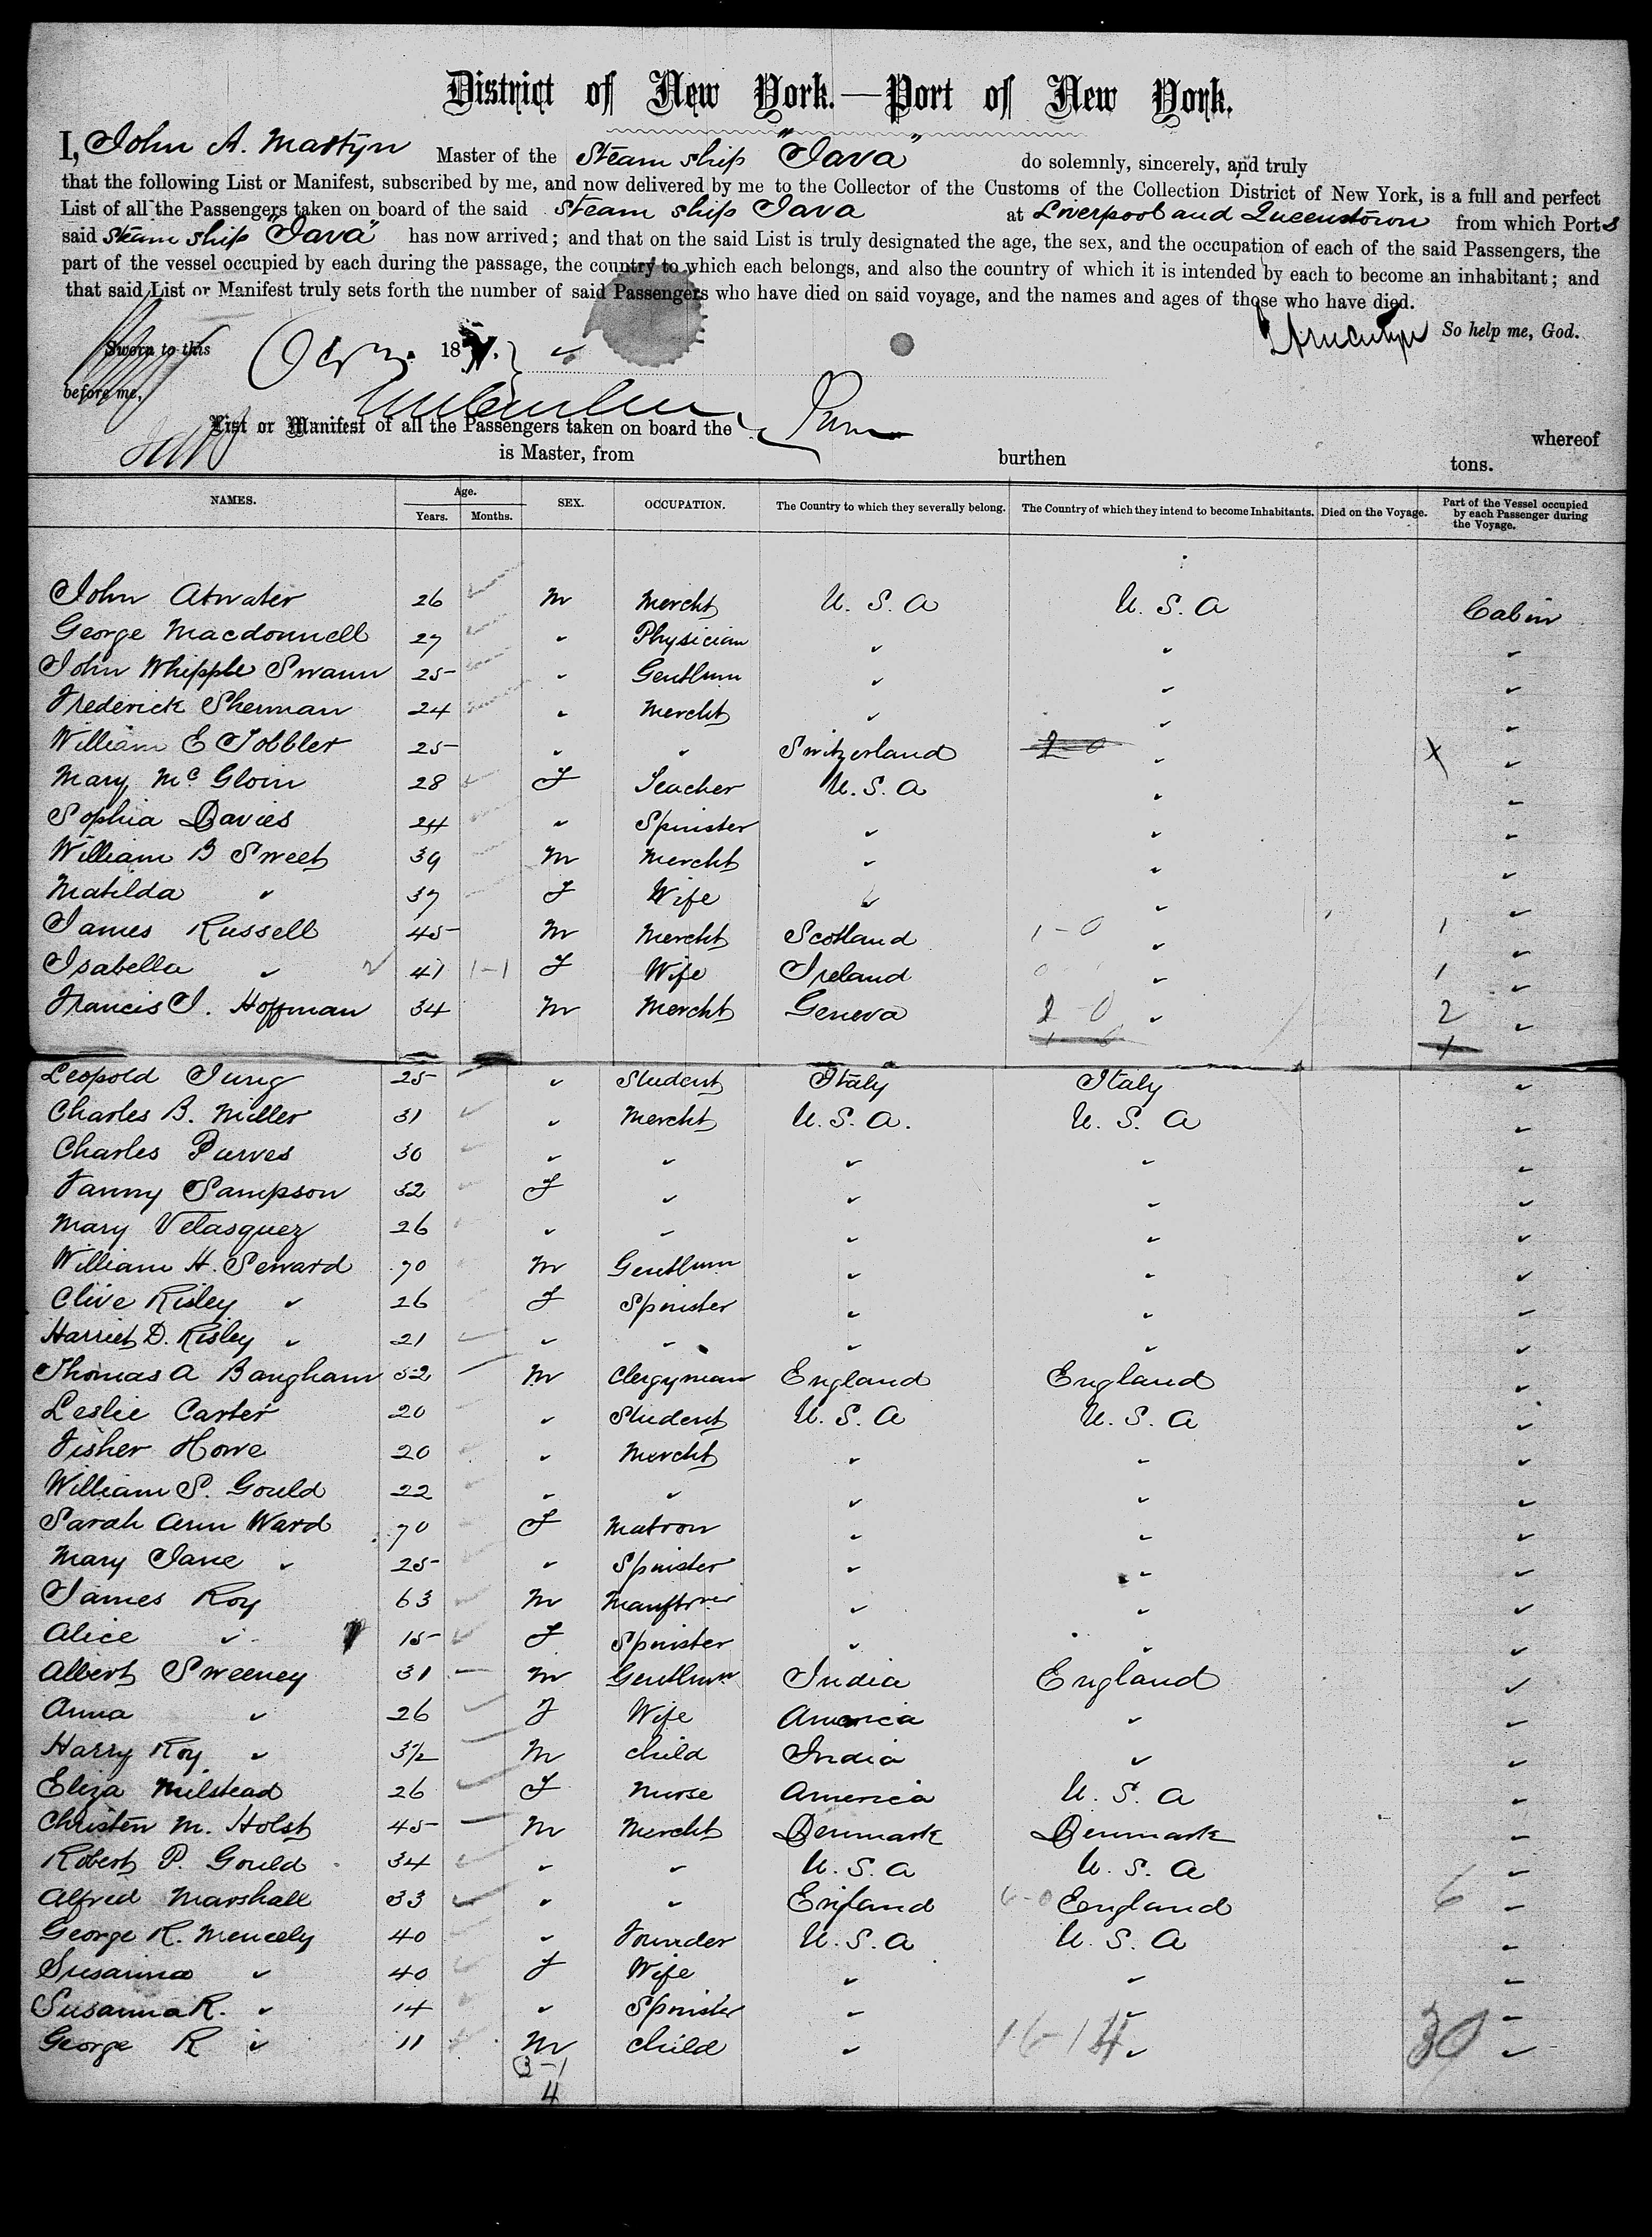 District of New York.—Port of New York.
I, John A. Martyn Master of the Steam ship "Java" do solemnly, sincerely, and truly
that the following List or Manifest, subscribed by me, and now delivered by me to the Collector of the Customs of the Collection District of New York, is a full and perfect
List of all the Passengers taken on board of the said Steam ship Java at Liverpool and Queenstown from which Ports
said Steam ship "Java" has now arrived; and that on the said List is truly designated the age, the sex, and the occupation of each of the said Passengers, the
part of the vessel occupied by each during the passage, the country to which each belongs, and also the country of which it is intended by each to become an inhabitant; and
that said List or Manifest truly sets forth the number of said Passengers who have died on said voyage, and the names and ages of those who have died.
So help me, God.
Sworn to this 18
before me,
List or Manifest of all the Passengers taken on board the whereof
is Master, from burthen tons.
NAMES. Age. Years. Months. SEX. OCCUPATION. The Country to which they severally belong. The Country of which they intend to become Inhabitants. Died on the Voyage. Part of the Vessel occupied by each Passenger during the Voyage.
John Atwater 26 M Mercht U. S. A U. S. A Cabin
George Macdonnell 27 " Physician " " "
John Whipple Swann 25 " Gentlmn " " "
Frederick Sherman 24 " Mercht " " "
William E Tobbler 25 " " Switzerland " "
Mary McGloin 28 F Teacher U. S. A " "
Sophia Davies 24 " Spinster " " "
William B Sweet 39 M Mercht " " "
Matilda " 37 F Wife " " "
James Russell 45 M Mercht Scotland 1-0 " 1 "
Isabella " 41 1-1 F Wife Ireland " 1 "
Francis J. Hoffman 34 M Mercht Geneva 2 0 " 2 "
Leopold Jung 25 " Student Italy Italy "
Charles B. Miller 31 " Mercht U. S. A. U. S. A "
Charles Purves 30 " " " " "
Fanny Sampson 32 F " " " "
Mary Velasquez 26 " " " " "
William H. Seward 70 M Gentlmn " " "
Olive Risley " 26 F Spinster " " "
Harriet D. Risley " 21 " " " " "
Thomas A Bangham 32 M Clergyman England England "
Leslie Carter 20 " Student U. S. A U. S. A "
Fisher Howe 20 " Mercht " " "
William S. Gould 22 " " " " "
Sarah Ann Ward 70 F Matron " " "
Mary Jane " 25 " Spinster " " "
James Roy 63 M Manftrer " " "
Alice " 15 F Spinster " " "
Albert Sweeney 31 M Gentlmn India England "
Anna " 26 F Wife America " "
Harry Roy " 3½ M Child India " "
Eliza Milstead 26 F Nurse America U. S. A "
Christen M. Holst 45 M Mercht Denmark Denmark "
Robert P. Gould 34 " " U. S. A U. S. A "
Alfred Marshall 33 " " England 6-0 England 6 "
George R. Meneely 40 " Founder U. S. A U. S. A "
Susanna " 40 F Wife " " "
Susanna R. " 14 " Spinster " " "
George R " 11 M Child " 16-14 " 30 "
3-1
4